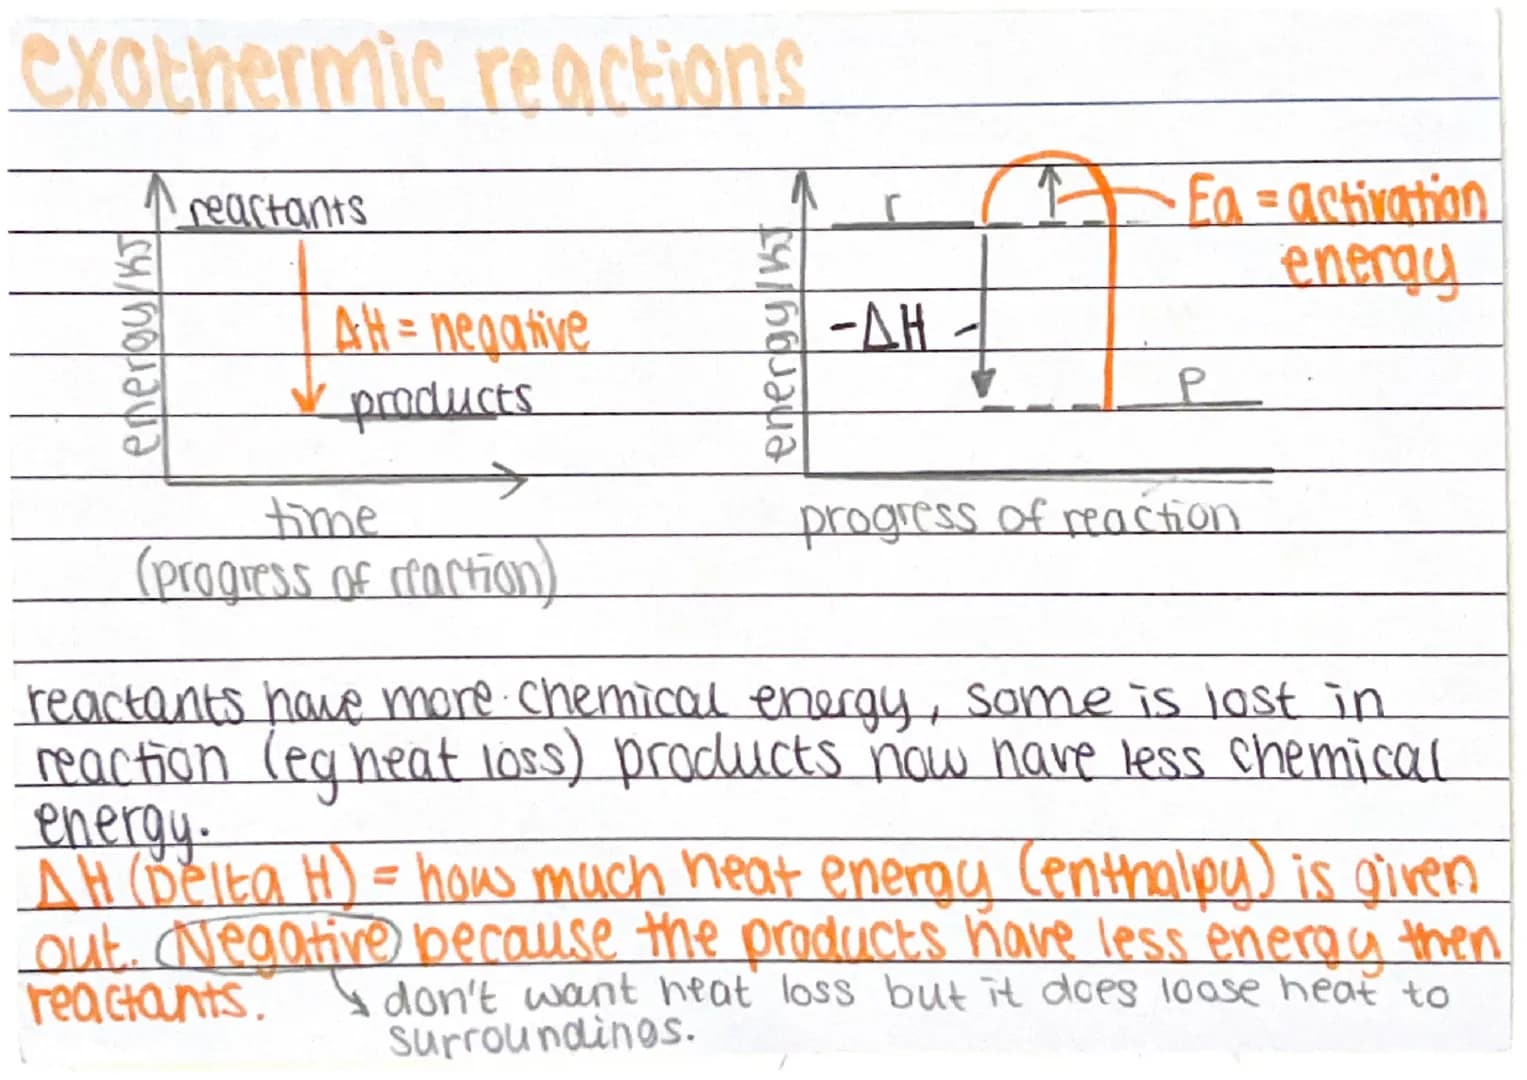 exothermic reactions
energy/KJ
reactants
ΔH = negative
products
time
(progress of reaction)
energy/KJ
r
Ea = activation
energy
-ΔH
P
progress of reaction
reactants have more chemical energy, some is lost in
reaction (eg heat loss) products now have less chemical
energy.
ΔH (Delta H) = how much heat energy (enthalpy) is given
out. Negative because the products have less energy then
reactants.
don't want heat loss but it does loose heat to
surroundings.